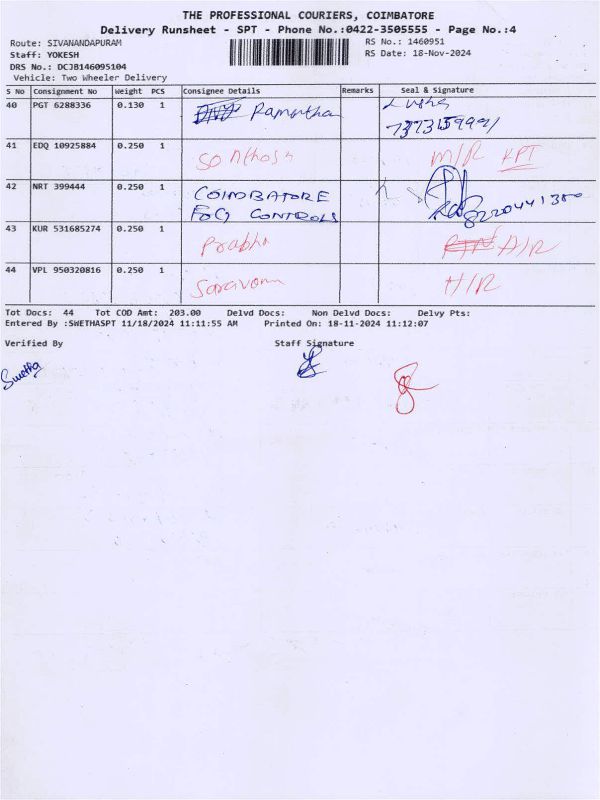 THE PROFESSIONAL COURIERS, COIMBATORE
Delivery Runsheet - SPT - Phone No.:0422-3505555 - Page No.:4
Route: SIVANANDAPURAM RS No.: 1460951
Staff: YOKESH RS Date: 18-Nov-2024
DRS No.: DCJB146095104
Vehicle: Two Wheeler Delivery
S No Consignment No Weight PCS Consignee Details Remarks Seal & Signature
40 PGT 6288336 0.130 1 Ramnathan
7373159991
41 EDQ 10925884 0.250 1 Santhosh M/R KPT
42 NRT 399444 0.250 1 COIMBATORE
CONTROLS 8220441380
43 KUR 531685274 0.250 1 Prabhu H/R
44 VPL 950320816 0.250 1 Saravana H/R
Tot Docs: 44 Tot COD Amt: 203.00 Delvd Docs: Non Delvd Docs: Delvy Pts:
Entered By :SWETHASPT 11/18/2024 11:11:55 AM Printed On: 18-11-2024 11:12:07
Verified By Staff Signature
Swetha